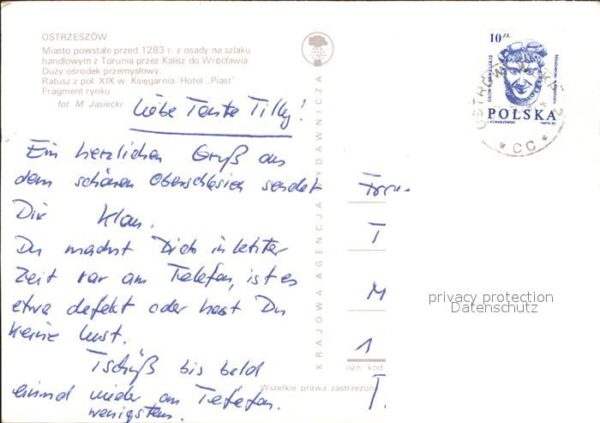 OSTRZESZÓW
Miasto powstałe przed 1283 r. z osady na szlaku
handlowym z Torunia przez Kalisz do Wrocławia.
Duży ośrodek przemysłowy.
Ratusz z poł. XIX w. Księgarnia. Hotel „Piast”.
Fragment rynku
fot. M. Jasiecki
Liebe Tante Tilly!
Ein herzlichen Gruß aus
dem schönen Oberschlesien sendet
Dir Klaus.
Du machst Dich in letzter
Zeit rar am Telefon, ist es
etwa defekt oder hast Du
keine Lust.
Tschüß bis bald
einmal wieder am Telefon.
wenigstens.
KRAJOWA AGENCJA WYDAWNICZA
Frau
T
M
1
ozn. kod.
T.
Wszelkie prawa zastrzeżone
10 zł
POLSKA
CC
privacy protection
Datenschutz